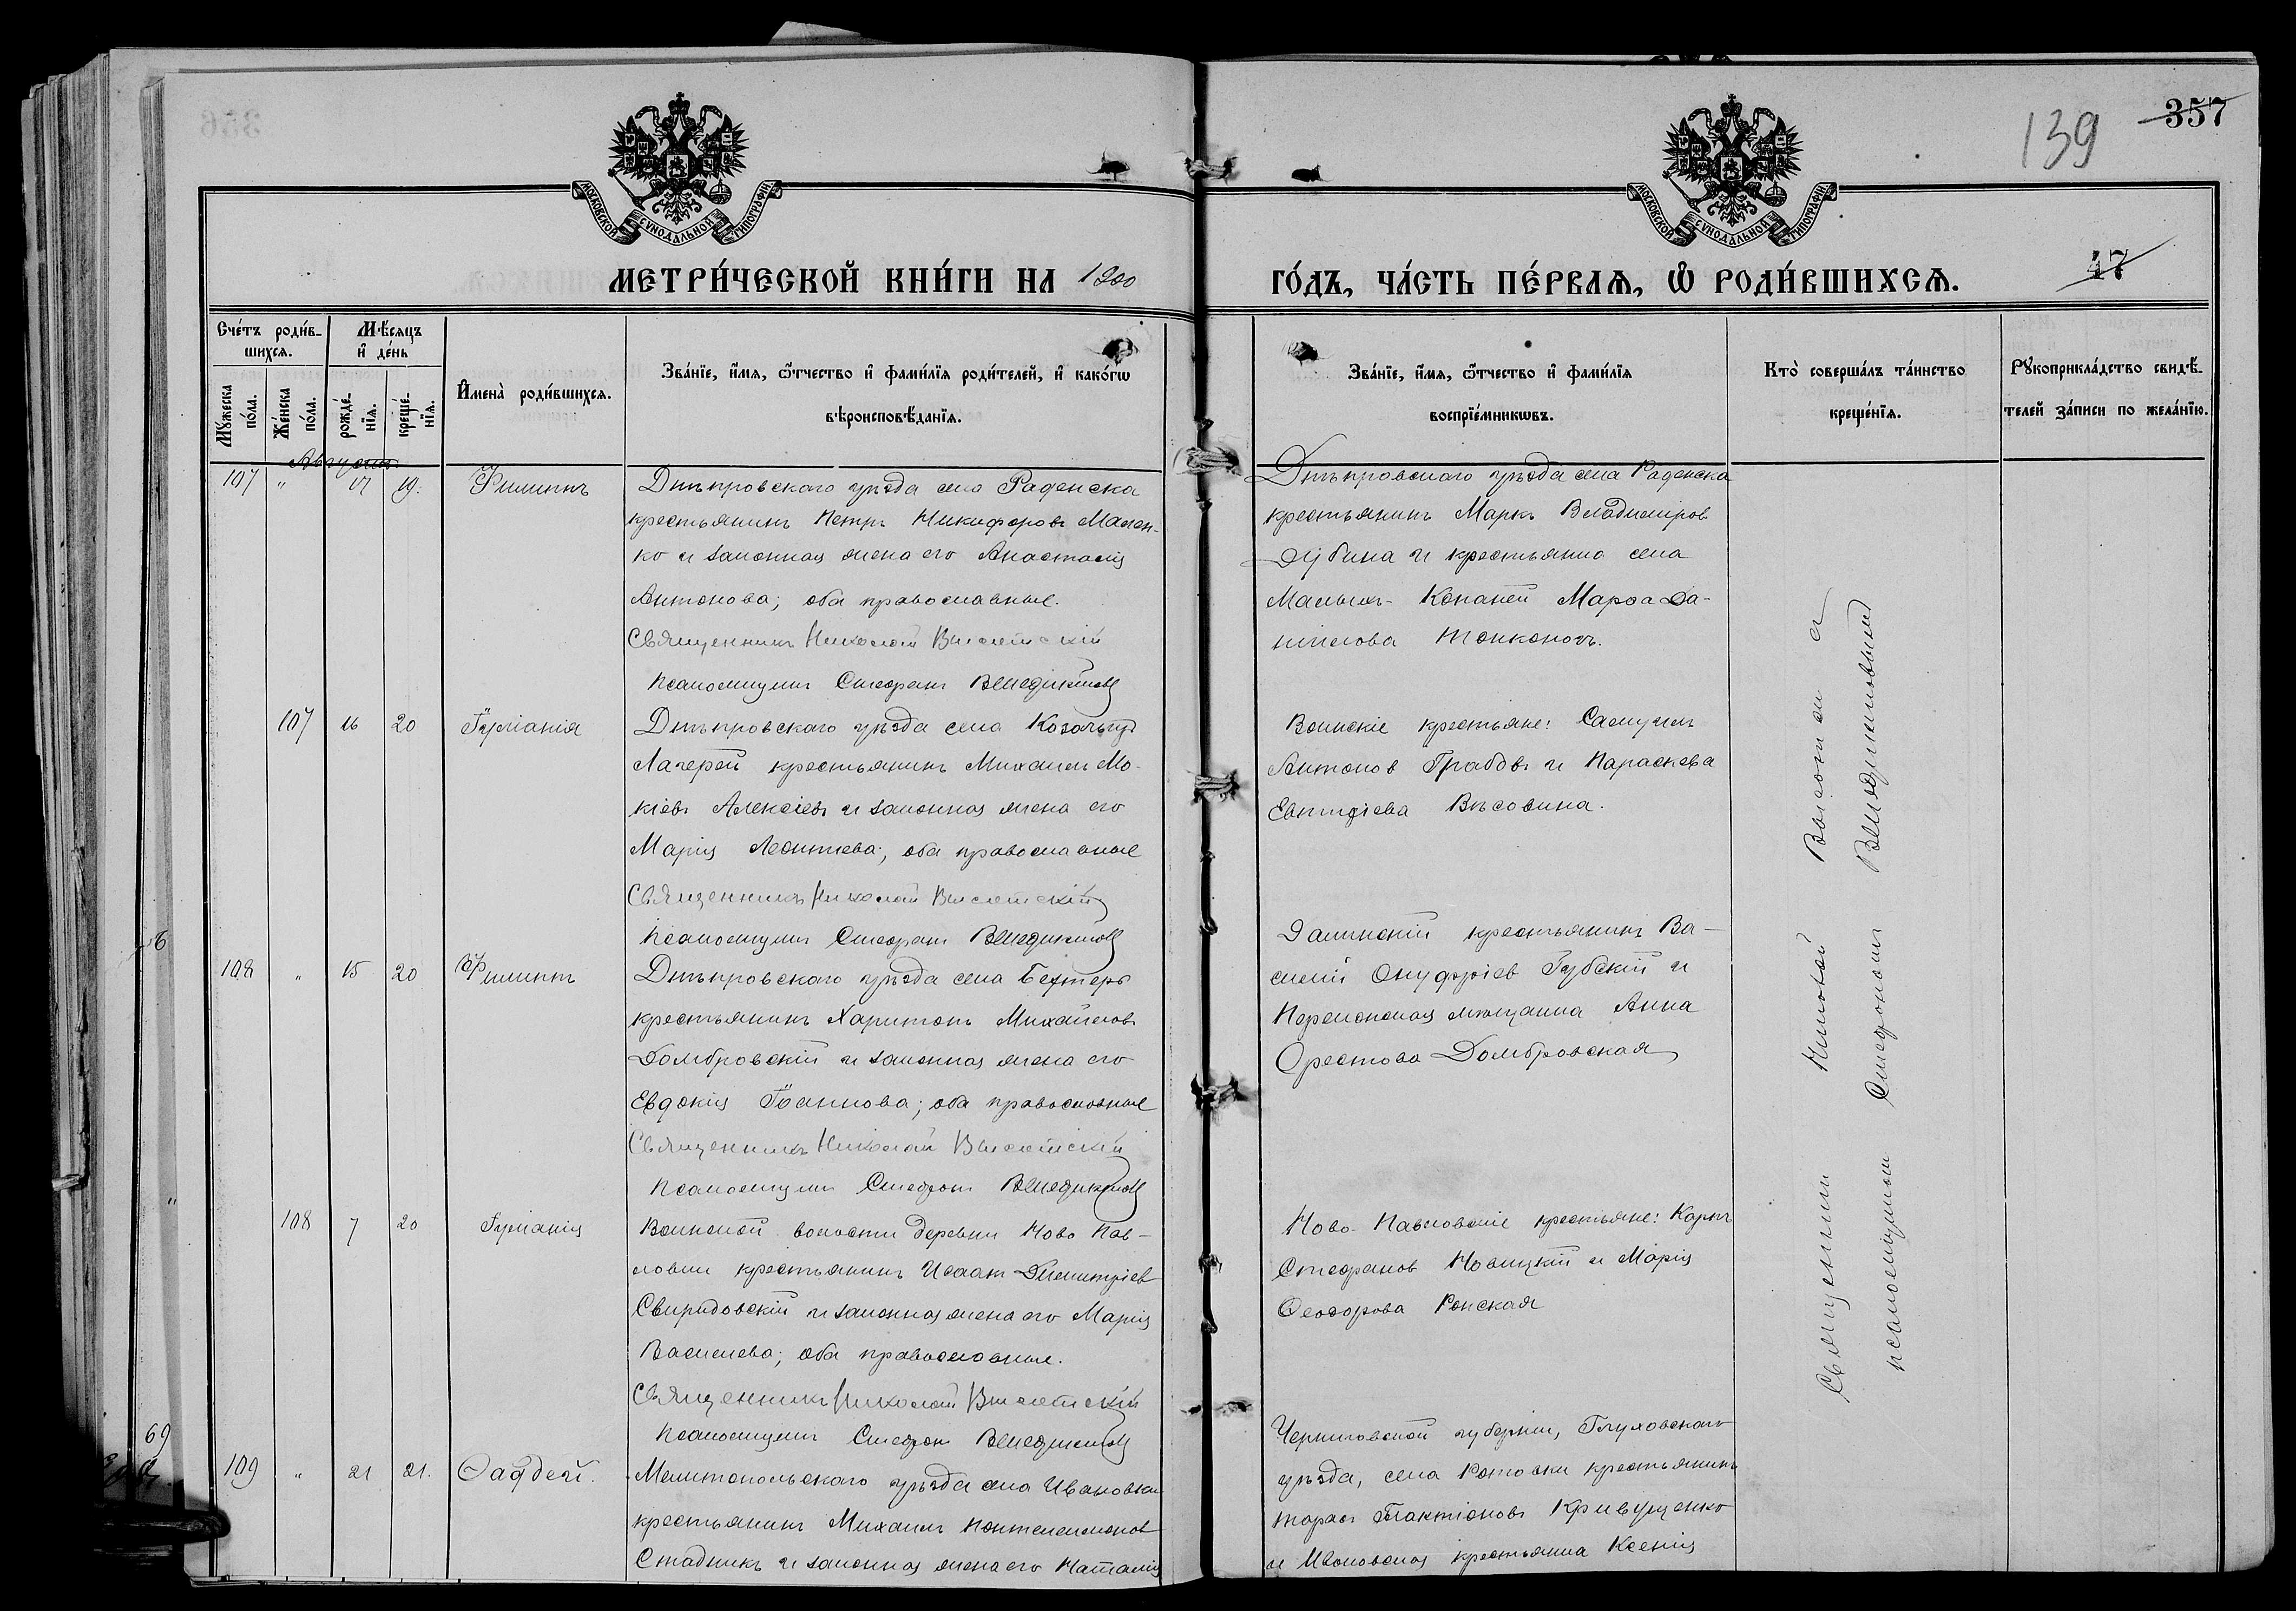 139
357
МОСКОВСКОЙ СѴНОДАЛЬНОЙ ТИПОГРАФІИ
МОСКОВСКОЙ СѴНОДАЛЬНОЙ ТИПОГРАФІИ
МЕТРИ́ЧЕСКОЙ КНИ́ГИ НА 1900
ГО́ДЪ, ЧА́СТЬ ПЕ́РВАЯ, Ѡ РОДИ́ВШИХСЯ.
47
Сче́тъ роди́в-
шихся.
Мꙋжеска по́ла.
Же́нска по́ла.
Мѣ́сяцъ
и҆ де́нь
рожде́-
нїя.
креще́-
нїя.
И҆мена̀ роди́вшихся.
Зва́нїе, и҆́мя, ѻ҆́тчество и҆ фами́лїя роди́телей, и҆ како́гѡ
вѣроисповѣ́данїя.
Зва́нїе, и҆́мя, ѻ҆́тчество и҆ фами́лїя
воспрїе́мникѡвъ.
Кто̀ соверша́лъ та́инство
креще́нїя.
Рꙋкоприкла́дство свидѣ́-
телей за́писи по жела́нїю.
Августъ
107 " 17 19. Филиппъ
Днѣпровскаго уѣзда села Раденска
крестьянинъ Петръ Никифоровъ Мален-
ко и законная жена его Анастасія
Антонова; оба православные.
Священникъ Николай
Псаломщикъ Стефанъ Венедиктовъ
Днѣпровскаго уѣзда села Раденска
крестьянинъ Маркъ Владиміровъ
Дубина и крестьянка села
Малыхъ-Копаней Марѳа Да-
ніилова Тонконогъ.
107 16 20 Іуліанія
Днѣпровскаго уѣзда села Козачьихъ
Лагерей крестьянинъ Михаилъ Мо-
кіевъ Алексѣевъ и законная жена его
Марія Леонтіева; оба православные
Священникъ Николай
Псаломщикъ Стефанъ Венедиктовъ
крестьяне: Самуилъ
Антоновъ Грабовъ и Параскева
Евпидіева
108 " 15 20 Филиппъ
Днѣпровскаго уѣзда села Бехтеръ
крестьянинъ Харитонъ Михайловъ
Домбровскій и законная жена его
Евдокія Іоаннова; оба православные
Священникъ Николай
Псаломщикъ Стефанъ Венедиктовъ
крестьянинъ Ва-
силій Онуфріевъ Губскій и
Херсонская мѣщанка Анна
Орестова Домбровская
108 7 20 Іуліанія
волости деревни Ново Пав-
ловки крестьянинъ Исаакъ Димитріевъ
Свиридовскій и законная жена его Марія
Васильева; оба православные.
Священникъ Николай
Псаломщикъ Стефанъ Венедиктовъ
Ново-Павловскіе крестьяне: Карпъ
Стефановъ Новицкій и Марія
Ѳеодорова Ронская
109 " 21 21. Ѳаддей.
Мелитопольскаго уѣзда села Ивановки
крестьянинъ Михаилъ Пантелеимоновъ
Стадникъ и законная жена его Наталія
Черниговской губерніи, Глуховскаго
уѣзда, села крестьянинъ
Тарасъ Галактіоновъ Кривущенко
и Ивановская крестьянка Ксенія
Священникъ Николай
псаломщикомъ Стефаномъ Венедиктовымъ
69